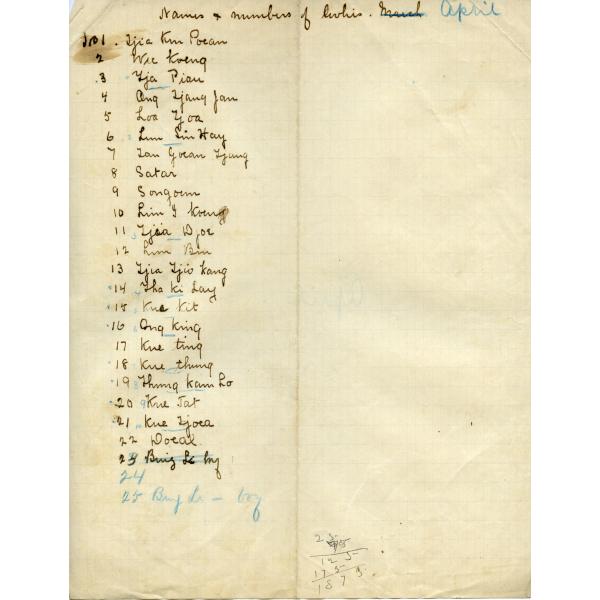 Names & numbers of Coolies. March April
No 1. Tjia Kin Poean
2 Wee Koeng
3 Tja Pian
4 Ong Tjang Jan
5 Loa Tjoa
6 Lim Sin Hay
7 Tan Goean Tjang
8 Satar
9 Songoem
10 Lim I Koeng
11 Tjia Djoe
12 Lim Bin
13 Tjia Tjio Kang
14 Tha Ki Lay
15 Kue Kit
16 Ong King
17 Kue ting
18 Kue thung
19 Thung Kam Lo
20 Kue Jat
21 Kue Tjoea
22 Doeal
23 boy
24
25 - boy
125
175
1875